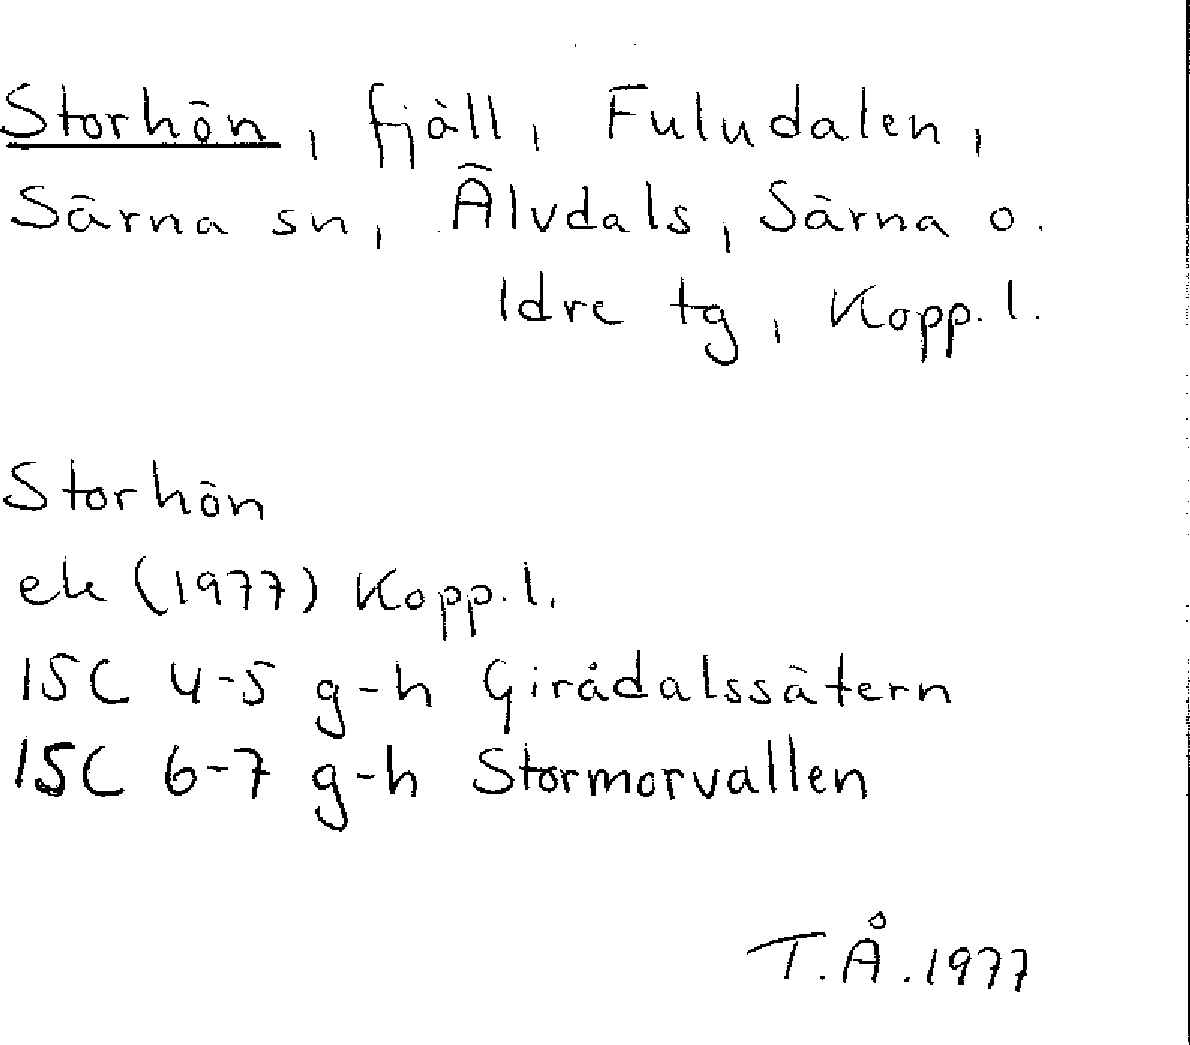 Storhön, fjäll, Fuludalen,
Särna sn, Älvdals, Särna o.
Idre tg, Kopp. l.
Storhön
ek (1977) Kopp. l.
15C 4-5 g-h Girådalssätern
15C 6-7 g-h Stormorvallen
T.Å. 1977